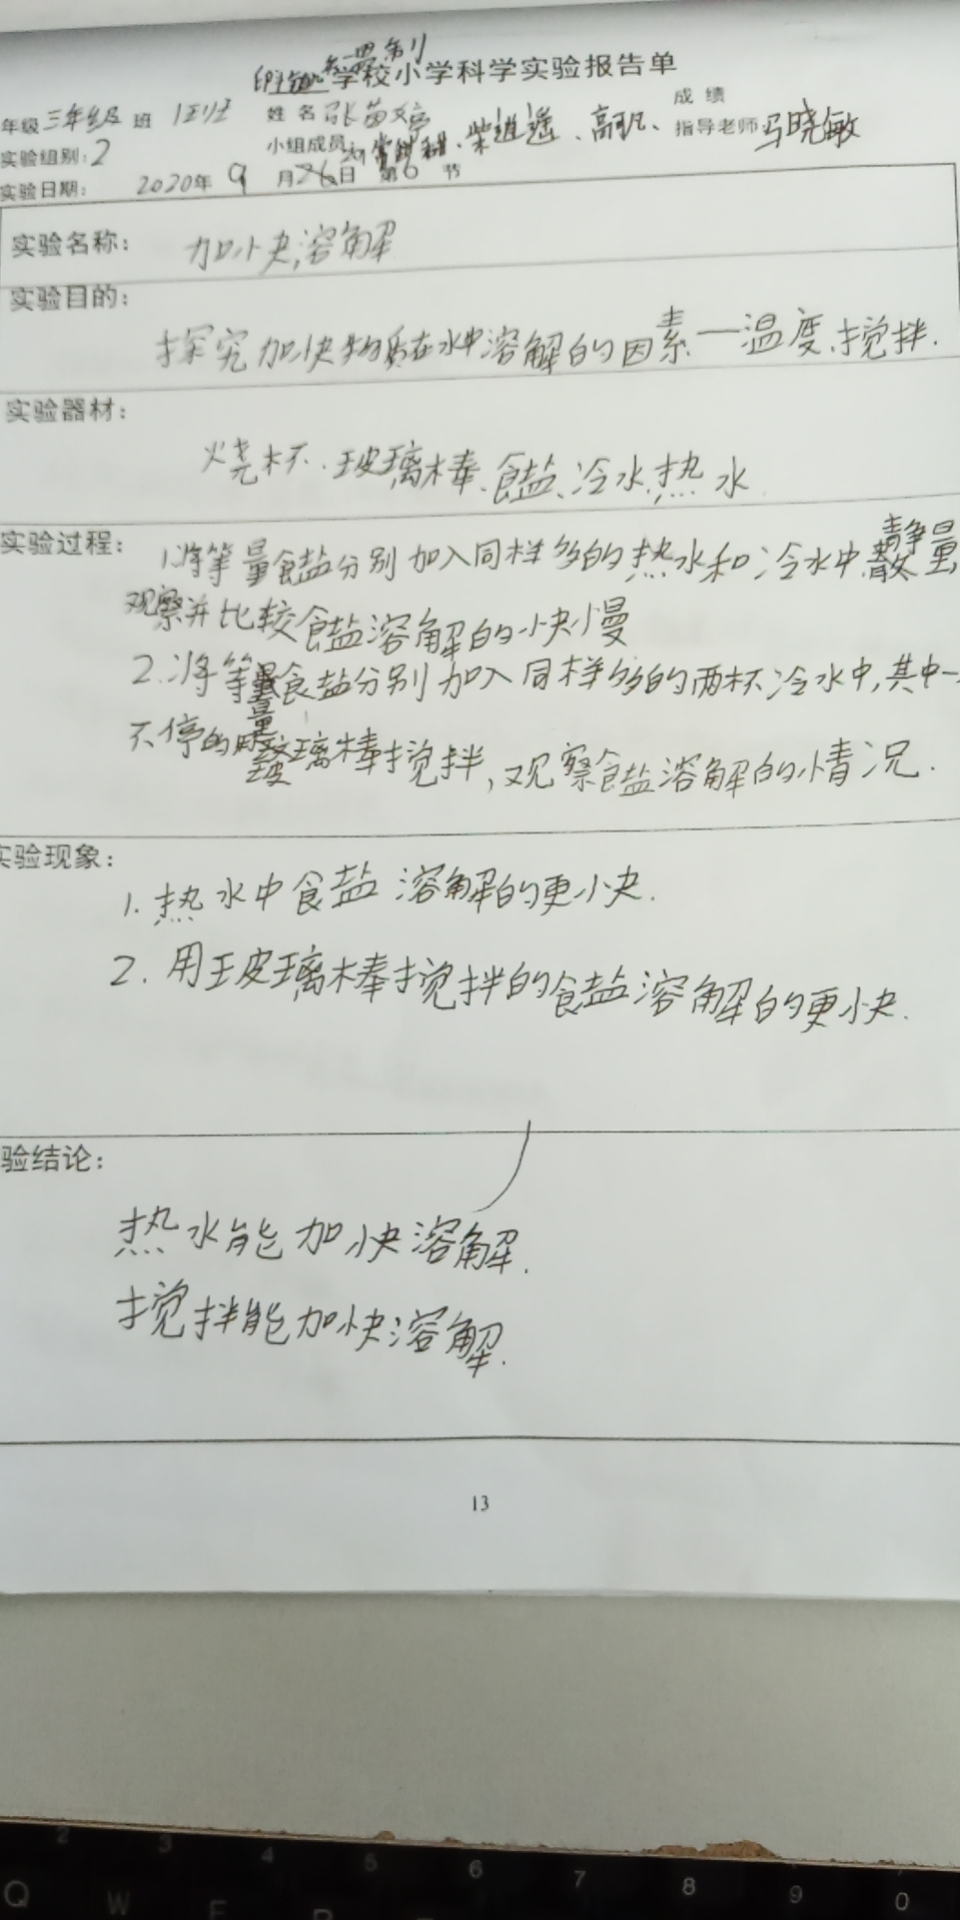 学校小学科学实验报告单
年级 三年级 班 1班 姓名 张茜婷 成绩
实验组别:2 小组成员 柴逍遥、高凡、 指导老师 马晓敏
实验日期: 2020年 9 月26日 第6节
实验名称: 加快溶解
实验目的:
探究加快物质在水中溶解的因素—温度、搅拌.
实验器材:
烧杯、玻璃棒、食盐、冷水、热水
实验过程: 1.将等量食盐分别加入同样多的热水和冷水中,静置
观察并比较食盐溶解的快慢
2.将等量食盐分别加入同样多的两杯冷水中,其中一
不停的用玻璃棒搅拌,观察食盐溶解的情况.
实验现象:
1.热水中食盐溶解的更快.
2.用玻璃棒搅拌的食盐溶解的更快.
验结论:
热水能加快溶解.
搅拌能加快溶解.
13
2 3 4 5 6 7 8 9 0
Q W E R